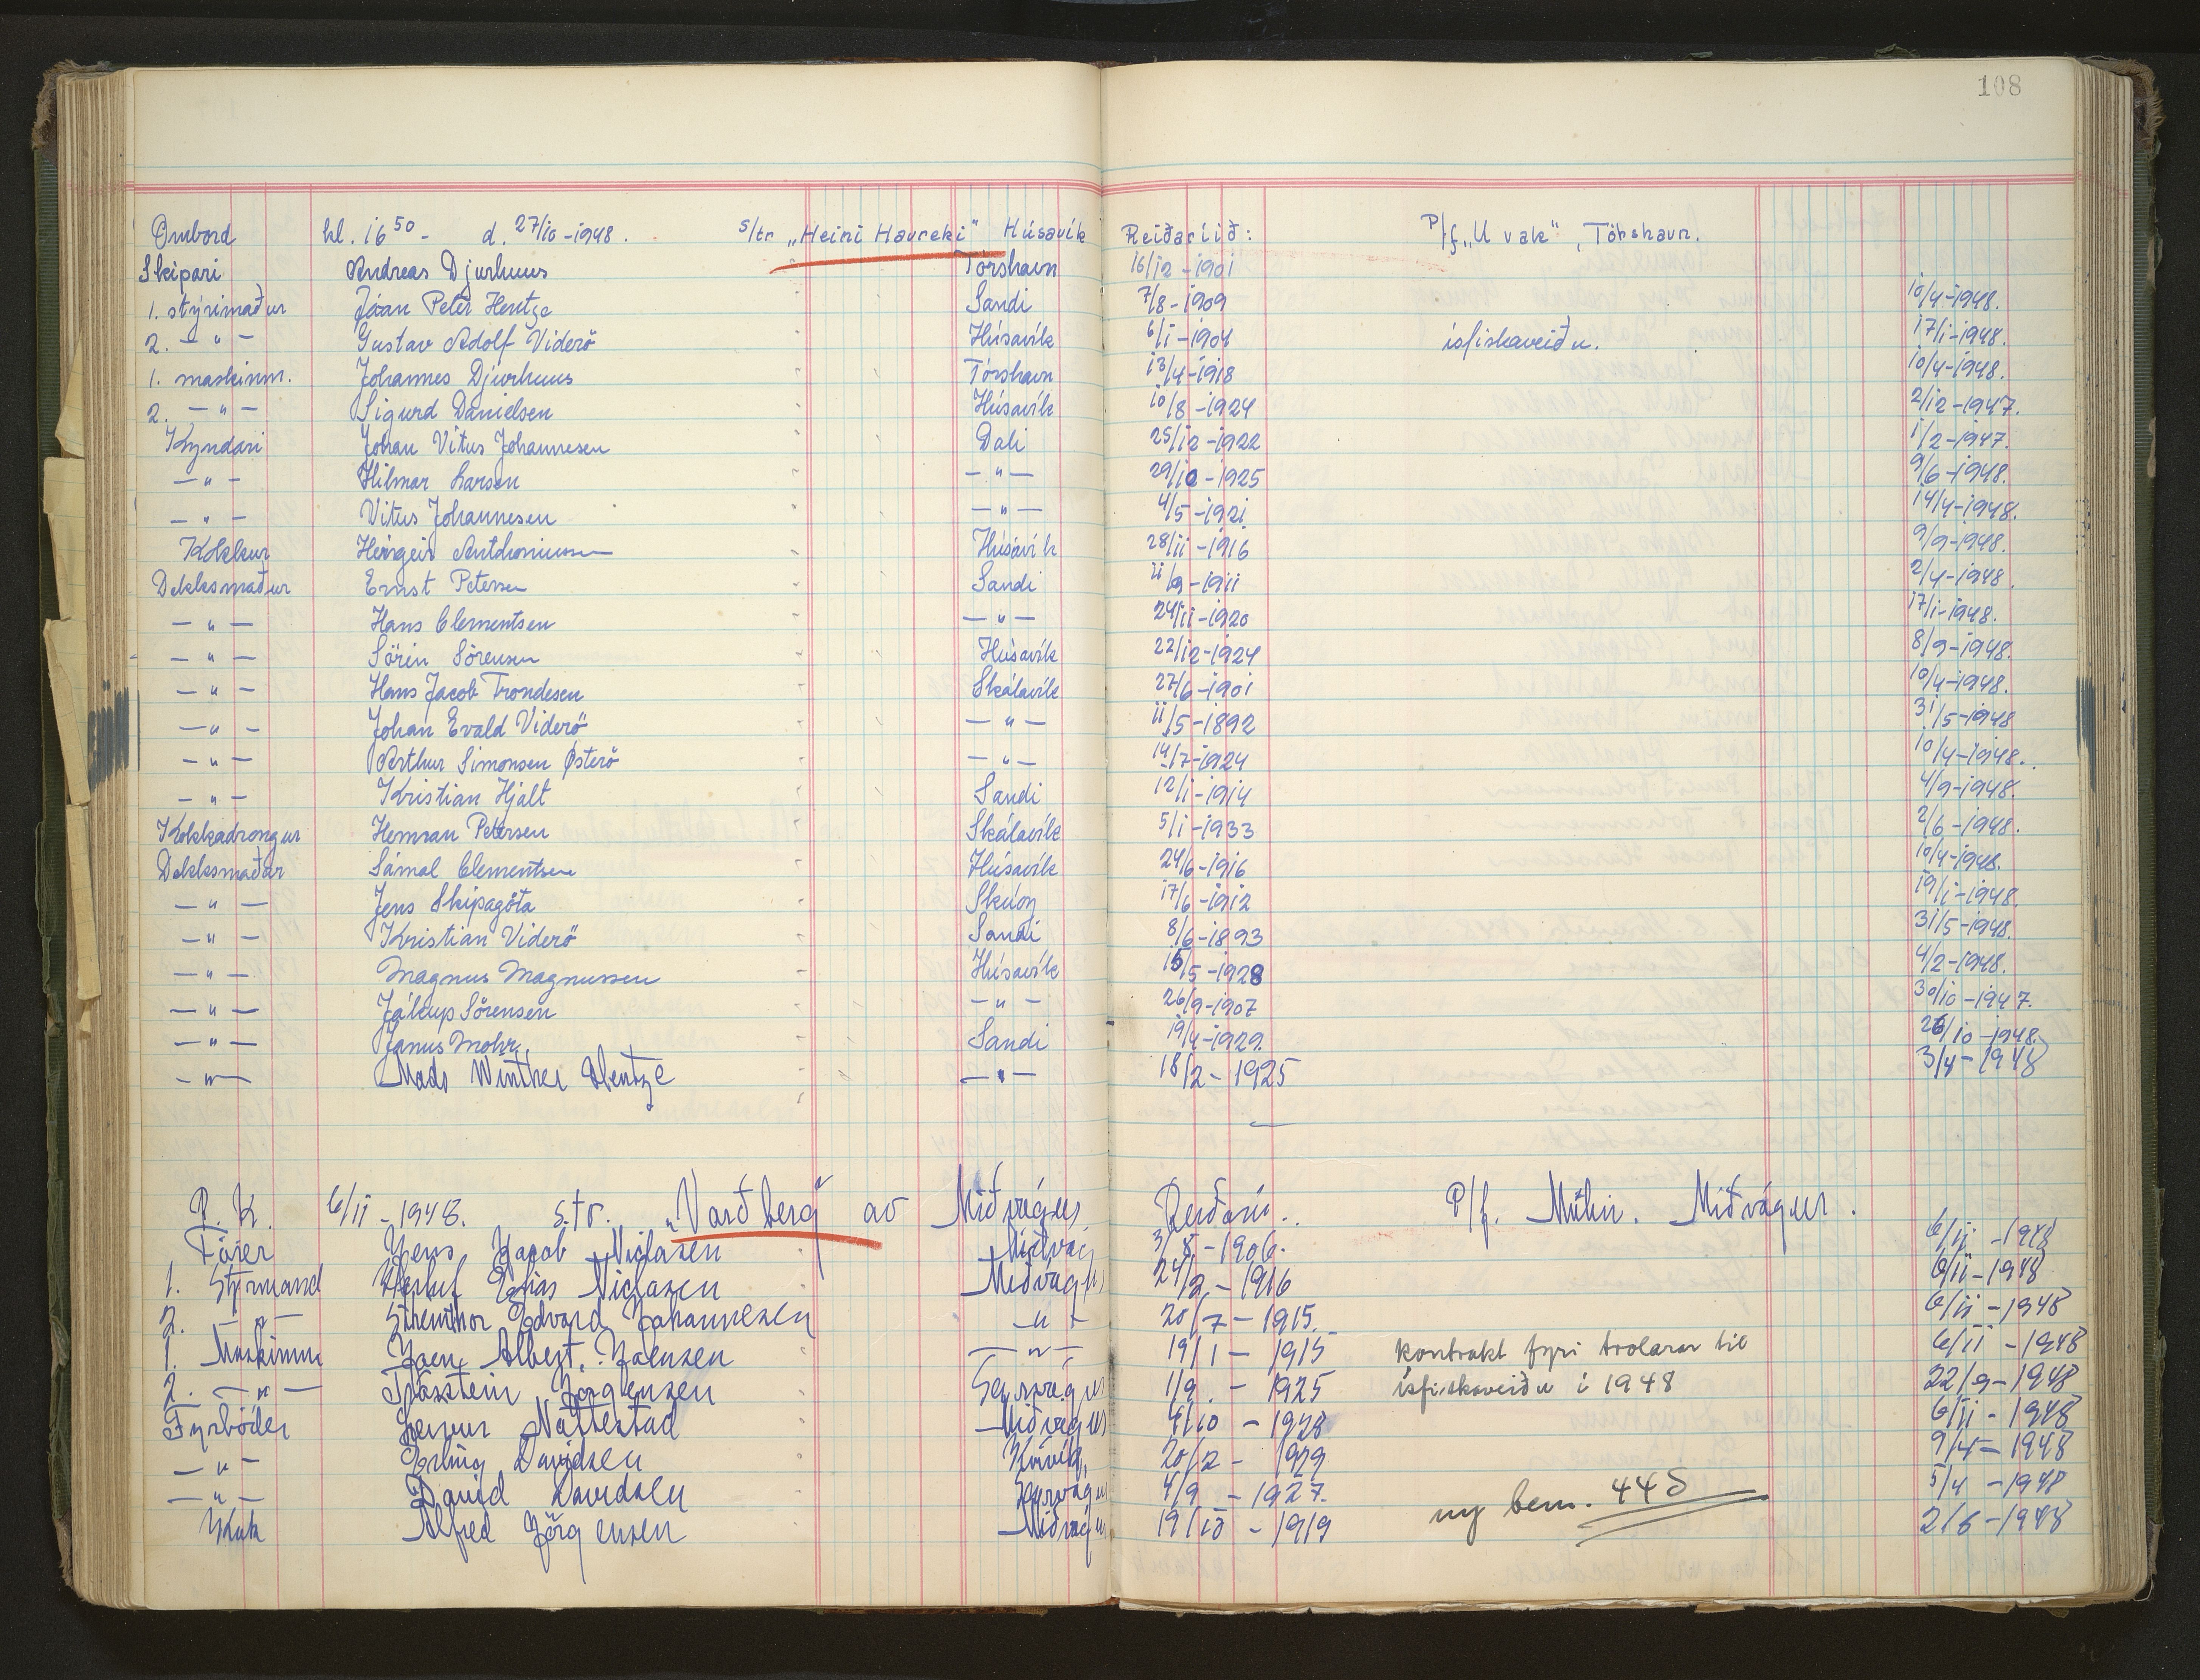 108
Ombord kl. 16 50 - d. 27/10-1948. s/tr „Heini Havreki“ Húsavík Reiðaríið: P/f „Uvak“, Tórshavn.
Skipari Andreas Djurhuus Tórshavn 16/12-1901
1. stýrimaður Jóan Peter Hentze Sandi 7/8-1909 10/4-1948.
2. -"- Gustav Adolf Viderö Húsavík 6/1-1904 ísfiskaveiðu. 17/1-1948.
1. maskinm. Johannes Djurhuus Tórshavn 13/4-1918 10/4-1948.
2. -"- Sigurd Danielsen Húsavík 10/8-1924 2/12-1947.
Kyndari Johan Vitus Johannesen Dali 25/12-1922 1/2-1947.
-"- Hilmar Larsen -"- 29/10-1925 9/6-1948.
-"- Vitus Johannesen -"- 4/5-1921 14/4-1948.
Kokkur Heirgeir Anthoniussen Húsavík 28/11-1916 9/9-1948.
Dekksmaður Ernst Petersen Sandi 11/9-1911 2/4-1948.
-"- Hans Clementsen -"- 24/11-1920 17/1-1948.
-"- Sörin Sörensen Húsavík 22/12-1924 8/9-1948.
-"- Hans Jacob Trondesen Skálavík 27/6-1901 10/4-1948.
-"- Johan Evald Viderö -"- 11/5-1892 31/5-1948
-"- Arthur Simonsen Østerö -"- 14/7-1924 10/4-1948.
-"- Kristian Hjalt Sandi 12/1-1914 4/9-1948.
Kokkadrongur Hemran Petersen Skálavík 5/1-1933 2/6-1948.
Dekksmaður Sámal Clementsen Húsavík 24/6-1916 10/4-1948.
-"- Jens Skipagöta Skúoy 17/6-1912 19/1-1948.
-"- Kristian Viderö Sandi 8/6-1893 31/5-1948.
-"- Magnus Magnussen Húsavík 15/5-1928 4/2-1948.
-"- Jákup Sörensen -"- 26/9-1907 30/10-1947.
-"- Janus Mohr Sandi 19/4-1929. 26/10-1948.
-"- Mads Winther Hentze -"- 18/2-1925 3/4-1948
P. K. 6/11-1948. s.tr. „Varðberg“ av Miðvágur. P/f. Múlin. Miðvágur.
Förer Jens Jacob Niclasen 3/8-1906. 6/11-1948
1. Styrmand Elias Niclasen Miðvágur 24/2-1916 6/11-1948
2. -"- Edvard Johannesen -"- 20/7-1915. 6/11-1948
1. Maskinm Joen Albert Joensen -"- 19/1-1915 kontrakt fyri trolarar til 6/11-1948
2. -"- Jörgensen 1/9.-1925 ísfiskaveiðu i 1948 22/9-1948
Fyrböder Nattestad Miðvágur 4/10-1928 6/11-1948
-"- Erling Davidsen Kvívík, 20/2-1929 9/4-1948
-"- David Davidsen 4/9-1927. ny bem. 445 5/4-1948
Kok Alfred Jörgensen Miðvágur 19/10-1919 2/6-1948